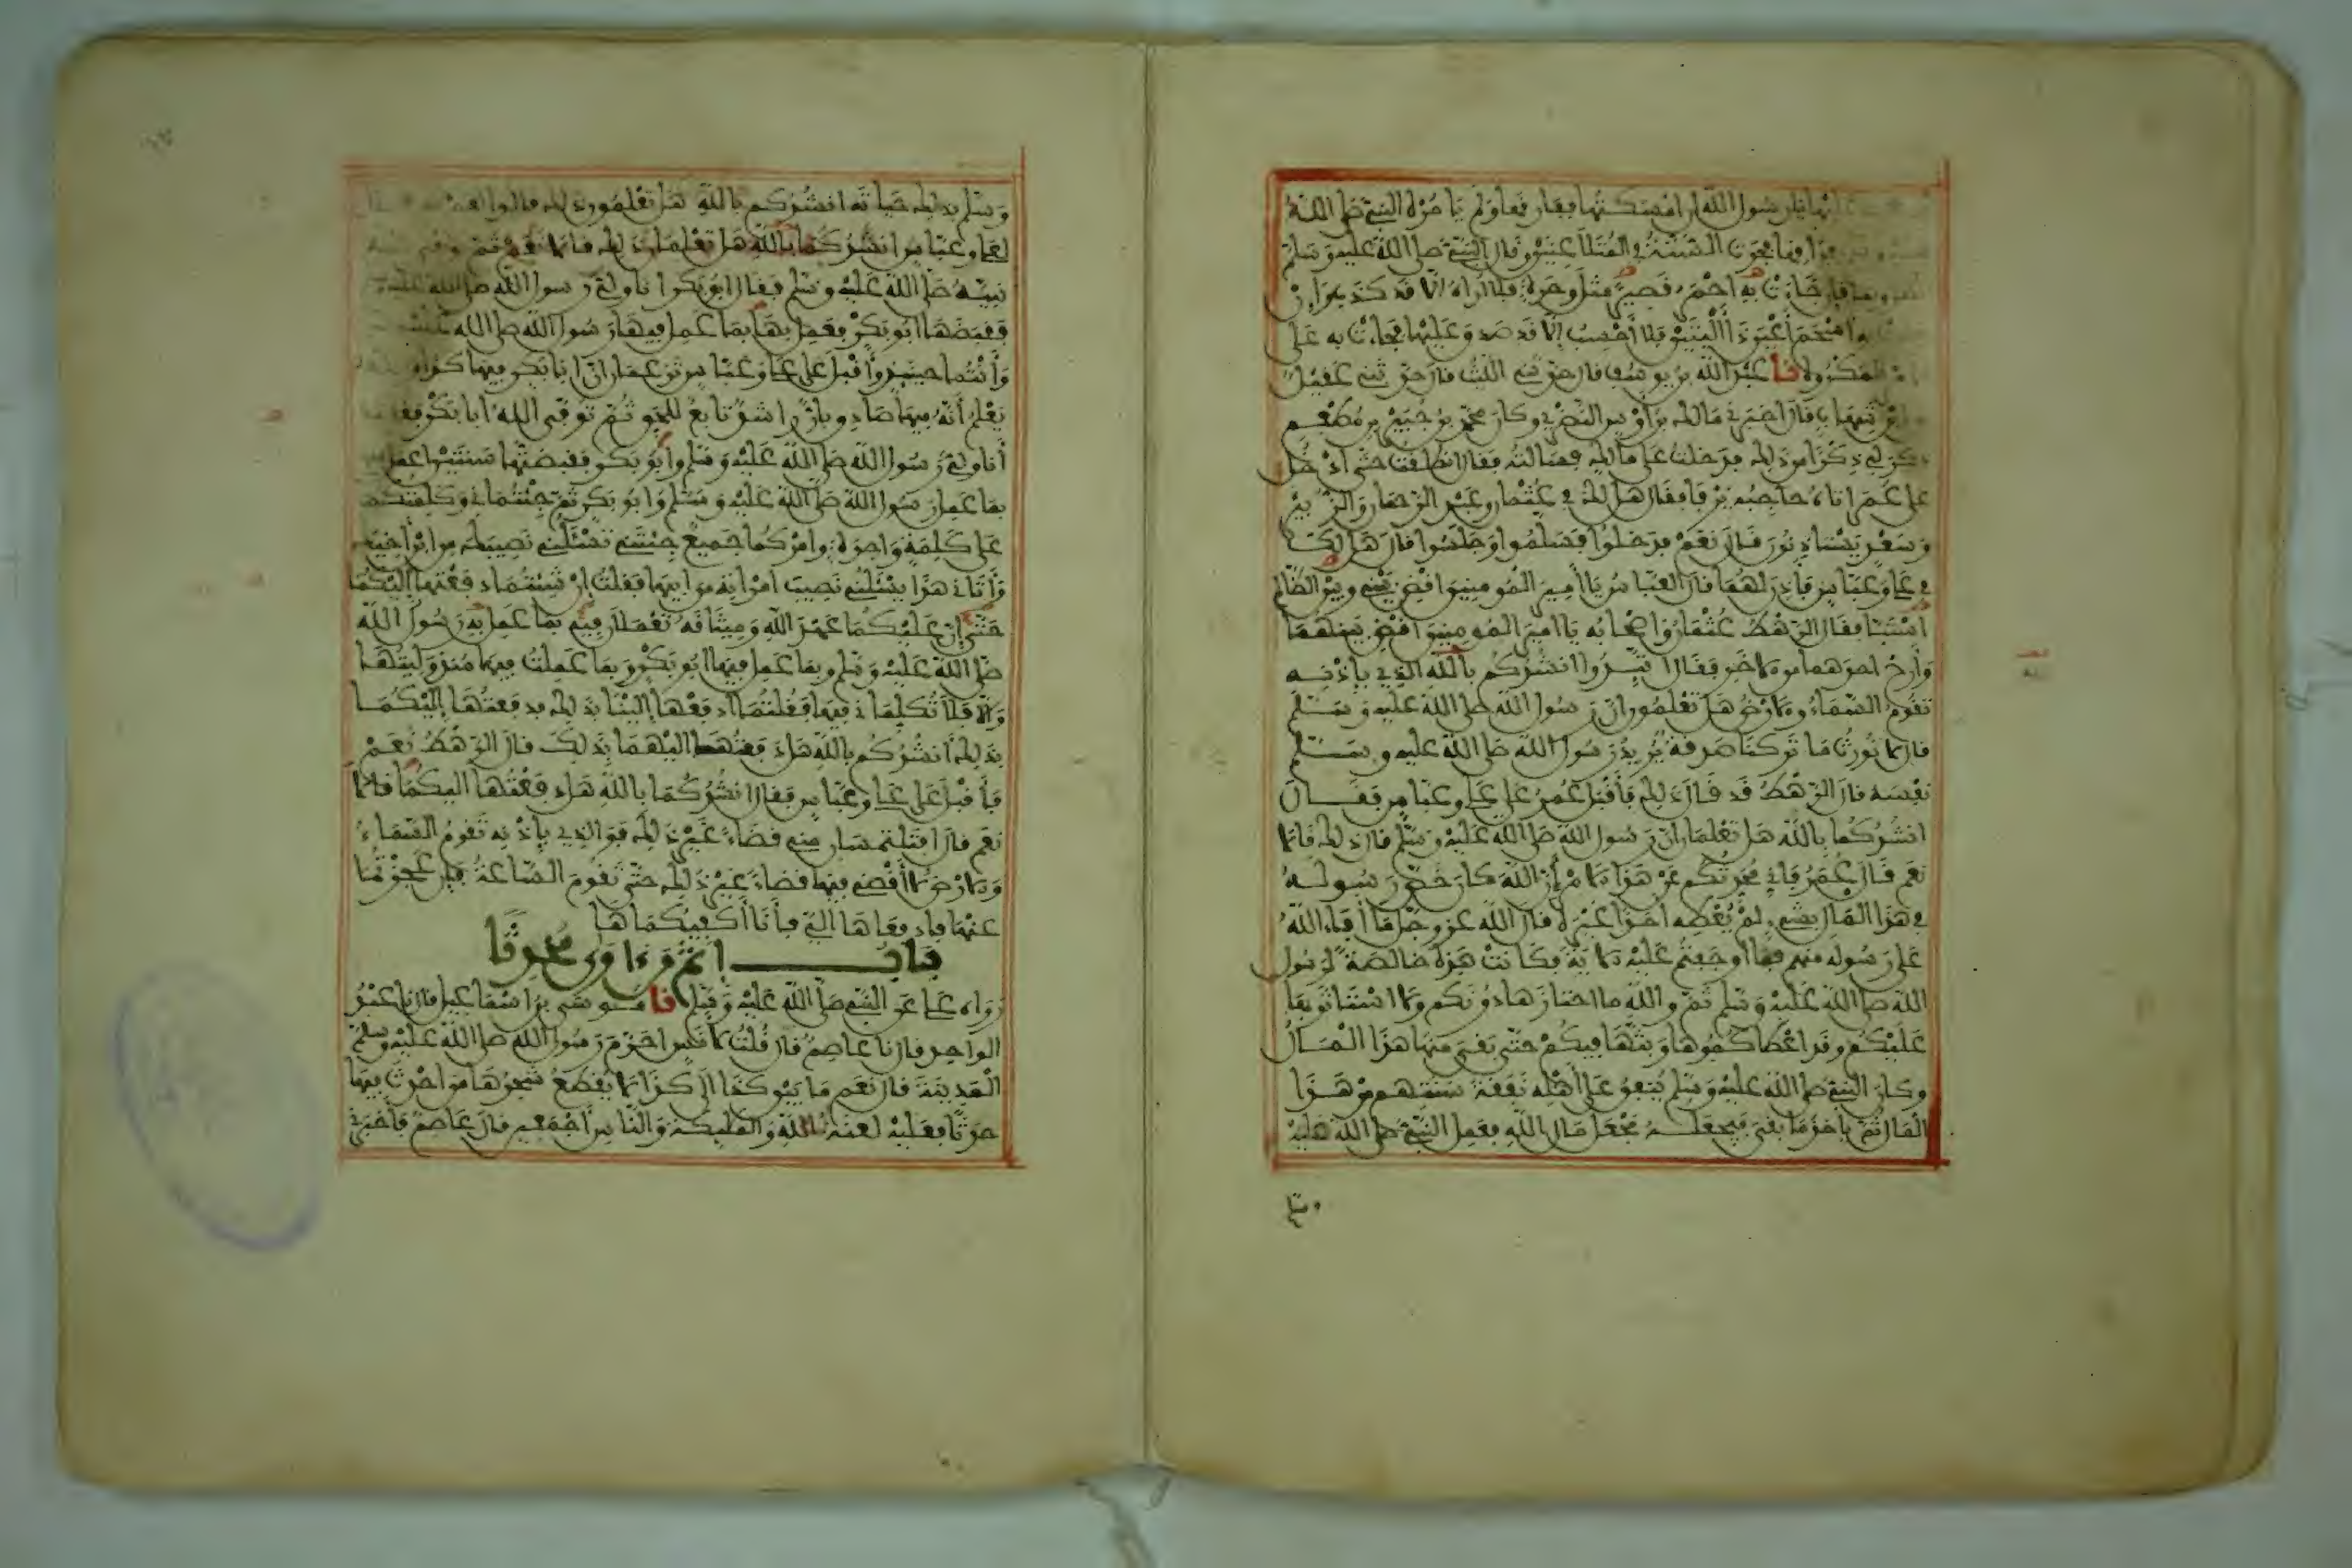 عليها يا رسول الله إن أمسكتها ففارقها ولم يأمره النبي صلى الله
فراقها فجرت السنة في المتلاعنين وقال النبي صلى الله عليه وسلم
انظروها فإن جاءت به أحمر قصيرا مثل وحرة فلا أراه إلا قد كذب وإن
جاءت به أسحم أعين ذا أليتين فلا أحسب إلا قد صدق عليها فجاءت به على
المكروه نا عبد الله بن يوسف قال حدثني الليث قال حدثني عقيل
عن ابن شهاب قال أخبرني مالك بن أوس النصري وكان محمد بن جبير بن مطعم
ذكر لي ذكرا من ذلك فدخلت على مالك فسألته فقال انطلقت حتى أدخل
على عمر أتاه حاجبه يرفا فقال هل لك في عثمان وعبد الرحمان والزبير
وسعد يستاذنون قال نعم فدخلوا فسلموا وجلسوا قال هل لك
في علي وعباس فأذن لهما قال العباس يا أمير المومنين اقض بيني وبين الظالم
استبا فقال الرهط عثمان وأصحابه يا أمير المومنين اقض بينهما
وأرح أحدهما من الاخر فقال اتئدوا أنشدكم بالله الذي بإذنه
تقوم السماء والارض هل تعلمون أن رسول الله صلى الله عليه وسلم
قال لا نورث ما تركنا صدقة يريد رسول الله صلى الله عليه وسلم
نفسه قال الرهط قد قال ذلك فأقبل عمر على علي وعباس فقال
أنشدكما بالله هل تعلمان أن رسول الله صلى الله عليه وسلم قال ذلك قالا
نعم قال عمر فإني محدثكم عن هذا الامر إن الله كان خص رسوله
في هذا المال بشيء لم يعطه أحدا غيره قال الله عز وجل ما أفاء الله
على رسوله منهم فما أوجفتم عليه الاية فكانت هذه خالصة لرسول
الله صلى الله عليه وسلم ثم والله ما احتازها دونكم ولا استاثر بها
عليكم وقد أعطاكموها وبثها فيكم حتى بقي منها هذا المال
وكان النبي صلى الله عليه وسلم ينفق على أهله نفقة سنتهم من هذا
المال ثم ياخذ ما بقي فيجعله مجعل مال الله فعمل النبي صلى الله عليه
وسلم
وسلم بذلك حياته أنشدكم بالله هل تعلمون ذلك قالوا نعم
لعلي وعباس أنشدكما بالله هل تعلمان ذلك قالا نعم ثم توفى الله
نبيه صلى الله عليه وسلم فقال أبو بكر أنا ولي رسول الله صلى الله عليه
فقبضها أبو بكر فعمل بها بما عمل فيها رسول الله صلى الله عليه
وأنتما حينئذ وأقبل على علي وعباس تزعمان أن أبا بكر فيها كذا والله
يعلم أنه فيها صادق بار راشد تابع للحق ثم توفى الله أبا بكر فقلت
أنا ولي رسول الله صلى الله عليه وسلم وأبي بكر فقبضتها سنتين أعمل فيها
بما عمل رسول الله صلى الله عليه وسلم وأبو بكر ثم جئتماني وكلمتكما
على كلمة واحدة وأمركما جميع جئتني تسئلني نصيبك من ابن أخيك
وأتاني هذا يسئلني نصيب امرأته من أبيها فقلت إن شئتما دفعتها إليكما
على أن عليكما عهد الله وميثاقه تعملان فيه بما عمل به رسول الله
صلى الله عليه وسلم وبما عمل فيها أبو بكر وبما عملت فيها منذ وليتها
وإلا فلا تكلماني فيها فقلتما ادفعها إلينا بذلك فدفعتها إليكما
بذلك أنشدكم بالله هل دفعتها إليهما بذلك قال الرهط نعم
فأقبل على علي وعباس فقال أنشدكما بالله هل دفعتها إليكما قالا
نعم قال أفتلتمسان مني قضاء غير ذلك فو الذي بإذنه تقوم السماء
والارض لا أقضي فيها قضاء غير ذلك حتى تقوم الساعة فإن عجزتما
عنها فادفعاها إلي فأنا أكفيكماها
باب إثم من اوى محدثا
رواه علي عن النبي صلى الله عليه وسلم نا موسى بن إسماعيل قال نا عبد
الواحد قال نا عاصم قال قلت لأنس أحرم رسول الله صلى الله عليه وسلم
المدينة قال نعم ما بين كذا إلى كذا لا يقطع شجرها من أحدث فيها
حدثا فعليه لعنة الله والملئكة والناس أجمعين قال عاصم فأخبرني